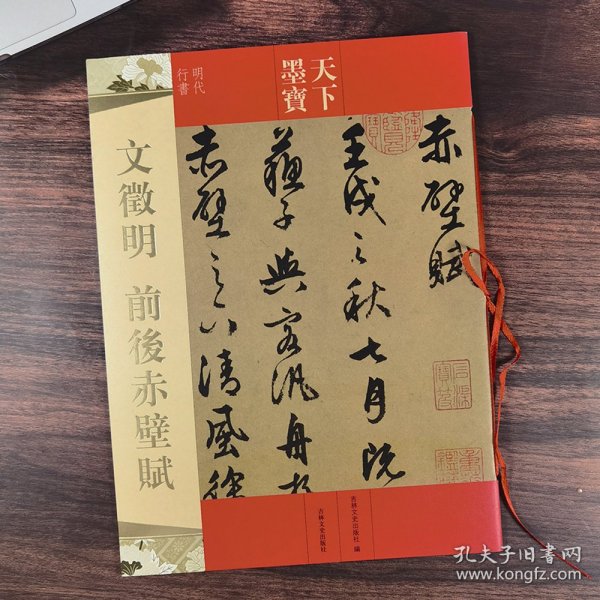 天下
墨寶
明代
行書
文徵明 前後赤壁賦
赤壁賦
壬戌之秋七月既
蘇子與客汎舟於
赤壁之下清風徐
吉林文史出版社 編
吉林文史出版社
孔夫子旧書网
www.kongfz.com